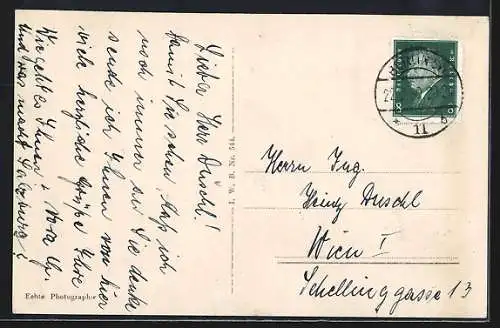 Lieber Herr Duschl!
Damit Sie sehen, daß ich
noch immer an Sie denke
sende ich Ihnen von hier
viele herzliche Grüße Ihre
Wie geht es Ihnen?
Und was macht Salzburg?
Echte Photographie
I. W. B. Nr. 544
Herrn Ing.
Heinz Duschl
Wien I
Schellinggasse 13
11